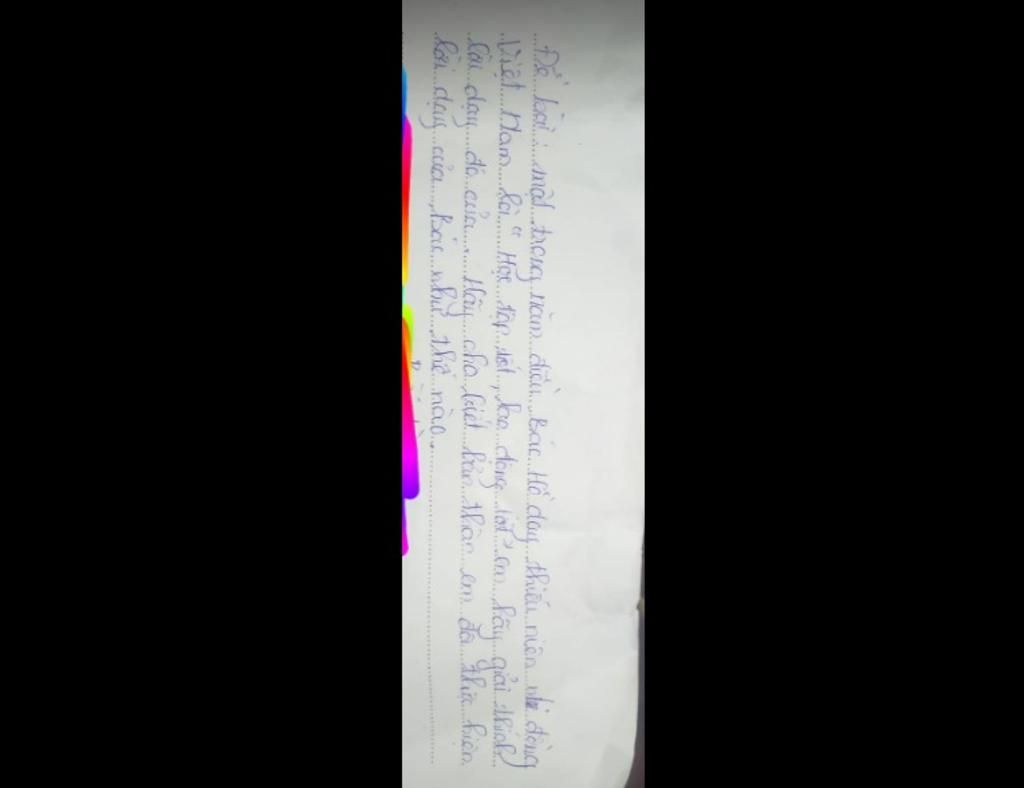 Đề bài: một trong năm điều Bác Hồ dạy thiếu niên nhi đồng
Việt Nam là "Học tập tốt, lao động tốt" em hãy giải thích
lời dạy đó của. Hãy cho biết bản thân em đã thực hiện
lời dạy của Bác như thế nào.